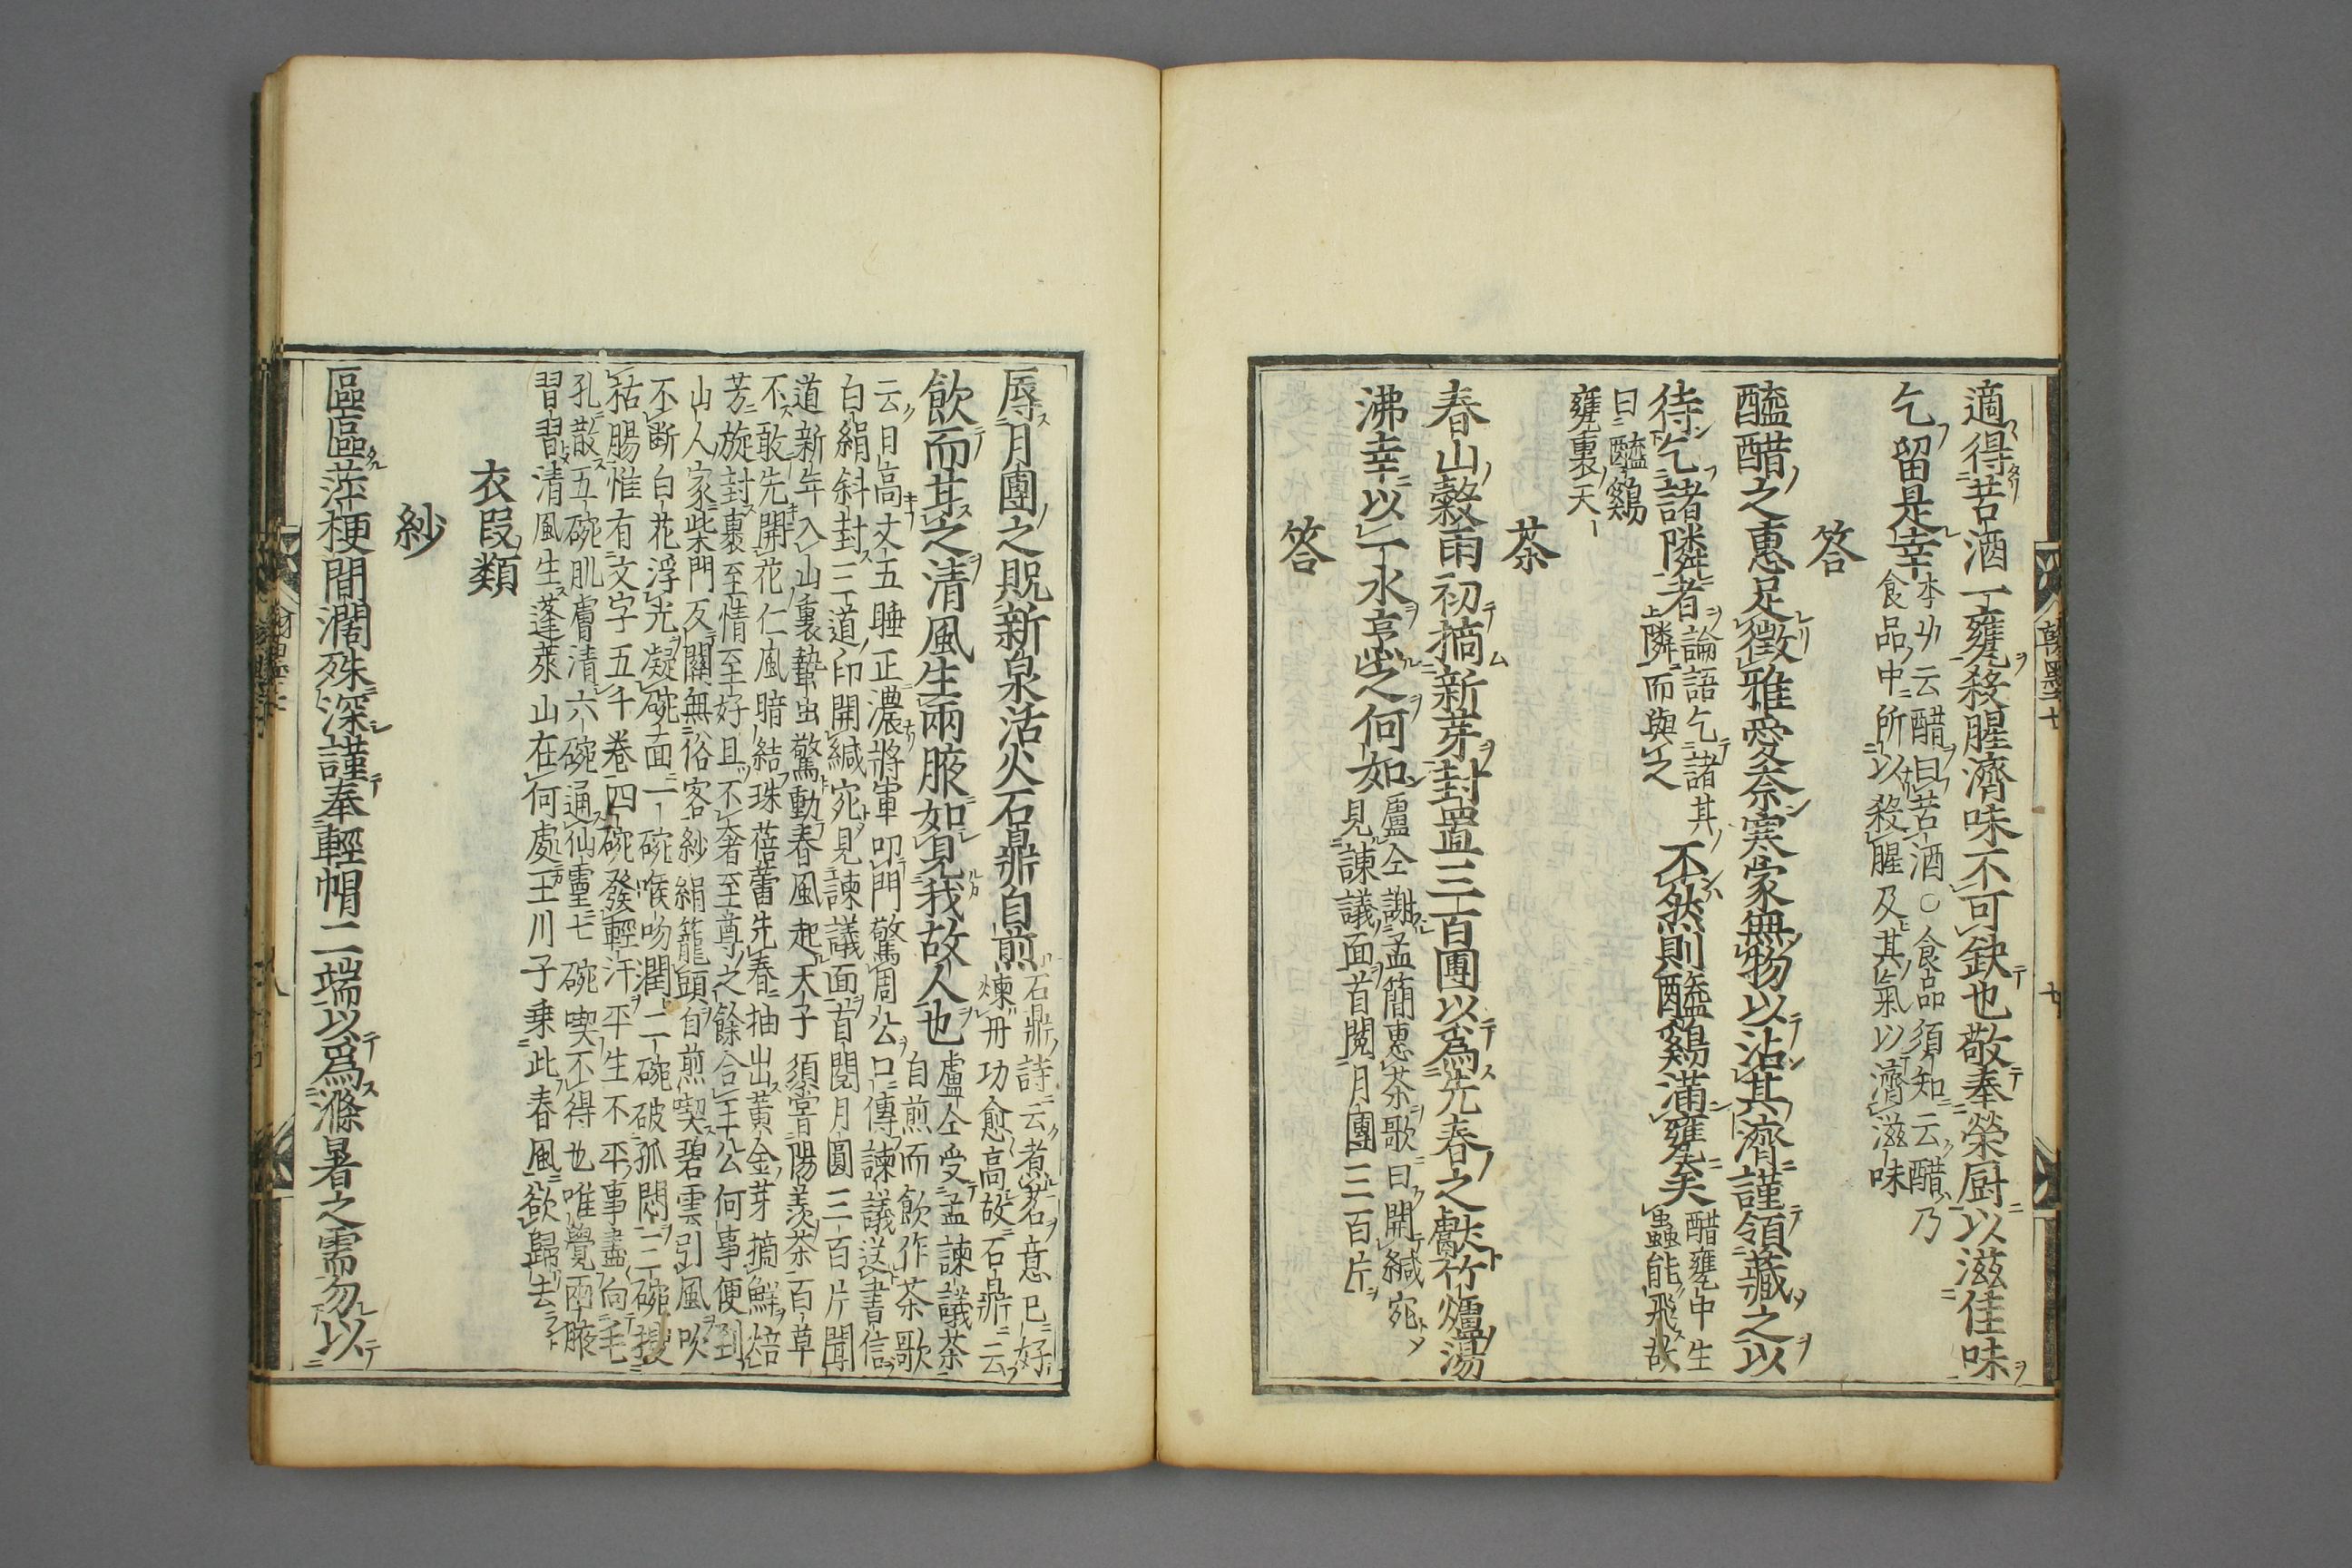 適得苦酒一甕殺腥濟味不可缺也敬奉榮厨以滋佳味
乞留是幸
本艸云醋曰苦酒○食品須知云醋乃
食品中所以殺腥及其氣以濟滋味
答
醯醋之惠足徵雅愛奈寒家無物以沾其濟謹領藏之以
待乞諸隣者
論語乞諸其
隣而與之
不然則醯鷄滿甕矣
醋甕中生
蟲能飛故
曰醯鷄
甕裏天
茶
春山穀雨初摘新芽封置三百團以爲先春之獻竹爐湯
沸幸以一水烹啜之何如
盧仝謝孟簡惠茶歌曰開緘宛
見諫議面首閱月團三百片
答
辱月團之貺新泉活火石鼎自煎
石鼎詩云者茗意已好
煉丹功愈高故石鼎云
飲而其之清風生兩腋如見我故人也
盧仝受孟諫議茶
自煎而飲作茶歌
云日高丈五睡正濃將軍叩門驚周公口傳諫議送書信
白絹斜封三道印開緘宛見諫議面首閱月圓三百片聞
道新年入山裏蟄虫驚動春風起天子須嘗陽羨茶百草
不敢先開花仁風暗結珠蓓蕾先春抽出黃金芽摘鮮焙
芳旋封裹至情至好且不奢至尊之餘合王公何事便到
山人家柴門反關無俗客紗絹籠頭自煎喫碧雲引風吹
不斷白花浮光凝碗面一碗喉吻潤二碗破孤悶三碗搜
枯腸惟有文字五千卷四碗發輕汗平生不平事盡向毛
孔散五碗肌膚清六碗通仙靈七碗喫不得也唯覺兩腋
習習清風生蓬萊山在何處玉川子乗此春風欲歸去
衣叚類
紗
區區萍梗間濶殊深謹奉輕帽二端以爲滌暑之需勿以